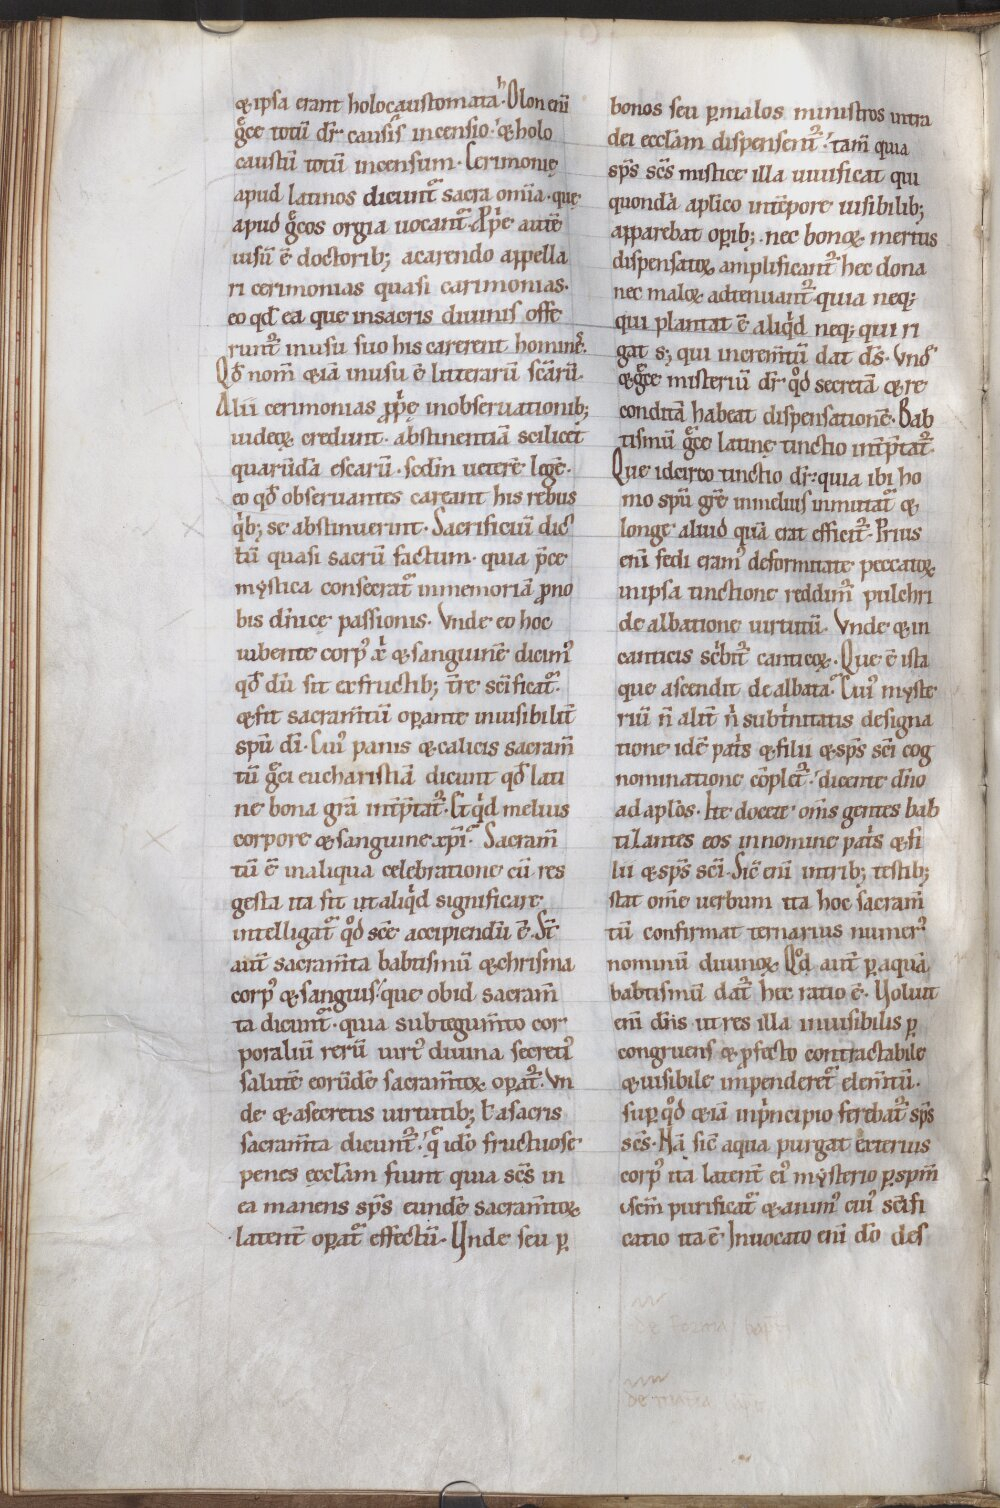 & ipsa erant holocaustomata. Olon eni̅
gͣce totu̅ dr̅ causis incensio. & holo
caustu̅ totu̅ incensum. Cerimonię
apud latinos dicunt᷑ sacra om̅ia. quę
apud gͣcos orgia uocant᷑. Pͥp̅e aute̅
uisu̅ e̅ doctorib; acarendo appella
ri cerimonias quasi carimonias.
eo qđ ea que insacris diuinis offe
runt᷑ inusu suo his carerent homines.
Qđ nom̅ & ia̅ inusu e̅ litteraru̅ sc̅aru̅.
Alii cerimonias ꝓpͥę inobseruationib;
iudeoꝝ credunt. abstinentia̅ scilicet
quaru̅da̅ escaru̅. sedm̅ uetere̅ lege̅.
eo qđ obseruantes careant his rebus
qͥb; se abstinuerint. Sacrificiu̅ dic
tu̅ quasi sacru̅ factum. quia p̅ce
mystica consecrat᷑ inmemoria̅ ꝓno
bis dn̅ice passionis. Vnde eo hoc
iubente corpꝰ xͥ & sanguine̅ dicimꝰ
qđ du̅ sit exfructib; t̅re sc̅ificat᷑.
& fit sacram̅tu̅ oꝑante inuisibilit̅
spu̅ di̅. Cuiꝰ panis & calicis sacram̅
tu̅ gͣci eucharistia̅ dicunt qđ lati
ne bona gr̅a int̅p̅tat᷑. Et qͥd melius
corpore & sanguine xp̅i. Sacram̅
tu̅ e̅ inaliqua celebratione cu̅ res
gesta ita fit ut aliqͥd significare
intelligat᷑ qͦd sc̅e accipiendu̅ e̅. St̅
aut̅ sacram̅ta babtismu̅ & chrisma
corpꝰ & sanguis. que obid sacram̅
ta dicunt᷑. quia subtegum̅to cor
poraliu̅ reru̅ uirtꝰ diuina secretiꝰ
salute̅ eoru̅de̅ sacram̅toꝝ oꝑat᷑. Vn
de & asecretis uirtutib; ł asacris
sacram̅ta dicunt᷑. qͣ ido̅ fructuose
penes eccl̅am fiunt quia sc̅s in
ea manens sp̅s eunde̅ sacram̅toꝝ
latent̅ oꝑat᷑ effectu̅. Unde seu ꝑ
bonos seu ꝑmalos ministros intra
dei eccl̅am dispensent᷑. tam̅ quia
sp̅s sc̅s mistice illa uiuificat qui
quonda̅ aplico int̅pore uisibilib;
apparebat oꝑib;. nec bonoꝝ meritis
dispensatoꝝ amplificant᷑ hec dona
nec maloꝝ adtenuant᷑. quia neq;
qui plantat e̅ aliqͥd neq; qui ri
gat s; qui increm̅tu̅ dat ds̅. Vnđ
& gͣce misteriu̅ dr̅ qͦd secreta̅ & re
condita̅ habeat dispensatione̅. Bab
tismu̅ gͣce latinę tinctio int̅p̅tat᷑.
Que idcirco tinctio dr̅. quia ibi ho
mo spu̅ gr̅e inmelius inmutat᷑ &
longe aliud qua̅ erat efficit᷑. Prius
eni̅ fedi eramꝰ deformitate peccatoꝝ
inipsa tinctione reddimꝰ pulchri
de albatione uirtutu̅. Vnde & in
canticis scͥbit᷑ canticoꝝ. Que e̅ ista
que ascendit de albata. Cuiꝰ myste
riu̅ n̅ alit̅ nͥ subtͥnitatis designa
tione ide̅ patͥs & filii & sp̅s sc̅i cog
nominatione co̅plet᷑. dicente dn̅o
ad aplo̅s. Ite docete om̅s gentes bab
tizantes eos innomine patͥs & fi
lii & sp̅s sc̅i. Sic̅ eni̅ intrib; testib;
stat om̅e uerbum ita hoc sacram̅
tu̅ confirmat ternarius numerꝰ
nominu̅ diuinoꝝ. Qͦd aut̅ ꝑ aqua̅
babtismu̅ dat᷑ hec ratio e̅. Uoluit
eni̅ dn̅s ut res illa inuisibilis ꝑ
congruens & ꝓfecto contractabile
& uisibile impenderet᷑ elem̅tu̅.
suꝑ qͦd & ia̅ inpͥncipio ferebat᷑ sp̅s
sc̅s. Na̅ sic̅ aqua purgat exterius
corpꝰ ita latent̅ eiꝰ mysterio ꝑ spm̅
sc̅m̅ purificat᷑ & animꝰ cuiꝰ sc̅ifi
catio ita e̅. Inuocato eni̅ do̅ des